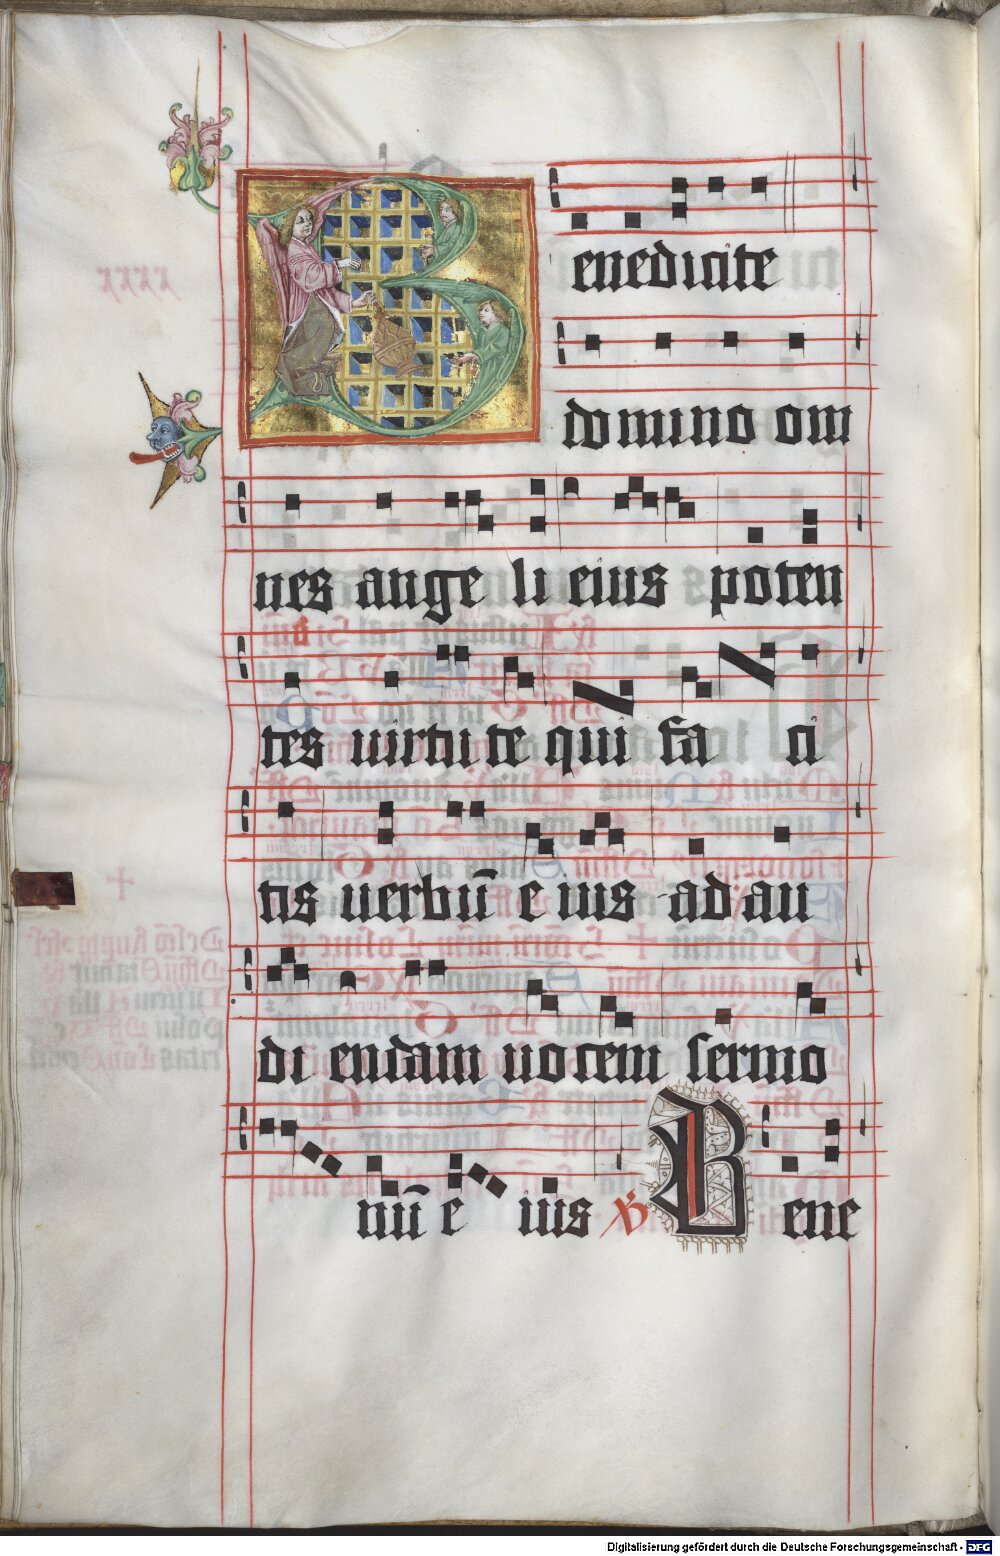 Benedicite
domino om
nes ange li eius poten
tes uirtu te qui fa ci
tis uerbū e ius ad au
di endam uocem sermo
nū e ius Bene
Digitalisierung gefördert durch die Deutsche Forschungsgemeinschaft - DFG